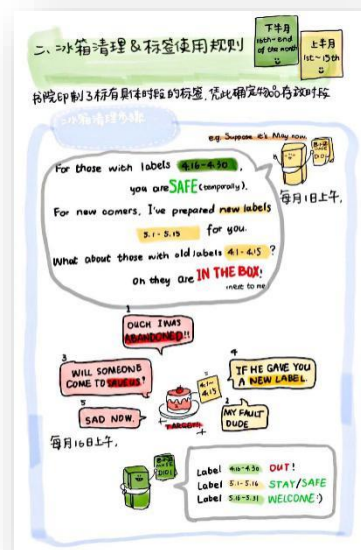 二、冰箱清理&标签使用规则
下半月
16th-end
of the month
上半月
1st-15th
书院印制了标有具体时段的标签,凭此确定物品存放时段
冰箱清理步骤
e.g. Suppose it's May now.
For those with labels 4.16-4.30,
you are SAFE (temporally).
For new comers, I've prepared new labels
5.1-5.15 for you.
What about those with old labels 4.1-4.15?
Oh they are IN THE BOX!
next to me
每月1日上午,
1
OUCH I WAS
ABANDONED!!
3
WILL SOMEONE
COME TO SAVE US?
4
IF HE GAVE YOU
A NEW LABEL.
5
SAD NOW.
4.1-
4.15
2
MY FAULT
DUDE
每月16日上午,
DIDI
Label 4.16-4.30 OUT!
Label 5.1-5.16 STAY/SAFE
Label 5.16-5.31 WELCOME:)